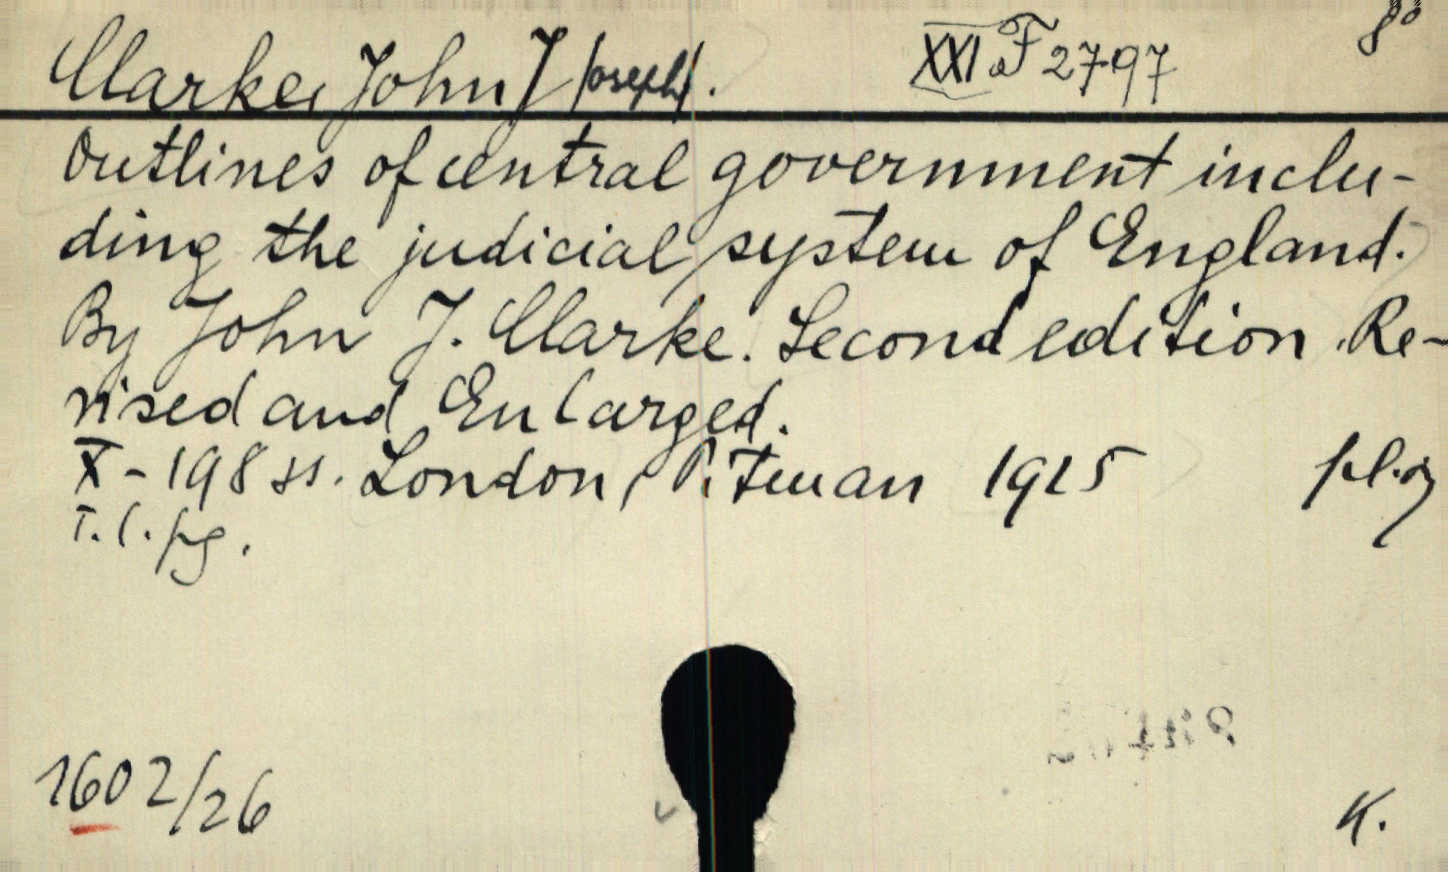 Clarke, John J/oseph/.
XXI a F 2797
8°
Outlines of central government inclu-
ding the judicial system of England.
By John J. Clarke. Second edition. Re-
vised and Enlarged.
X-198 ss. London, Pitman 1925
T.l.pg.
1602/26
K.